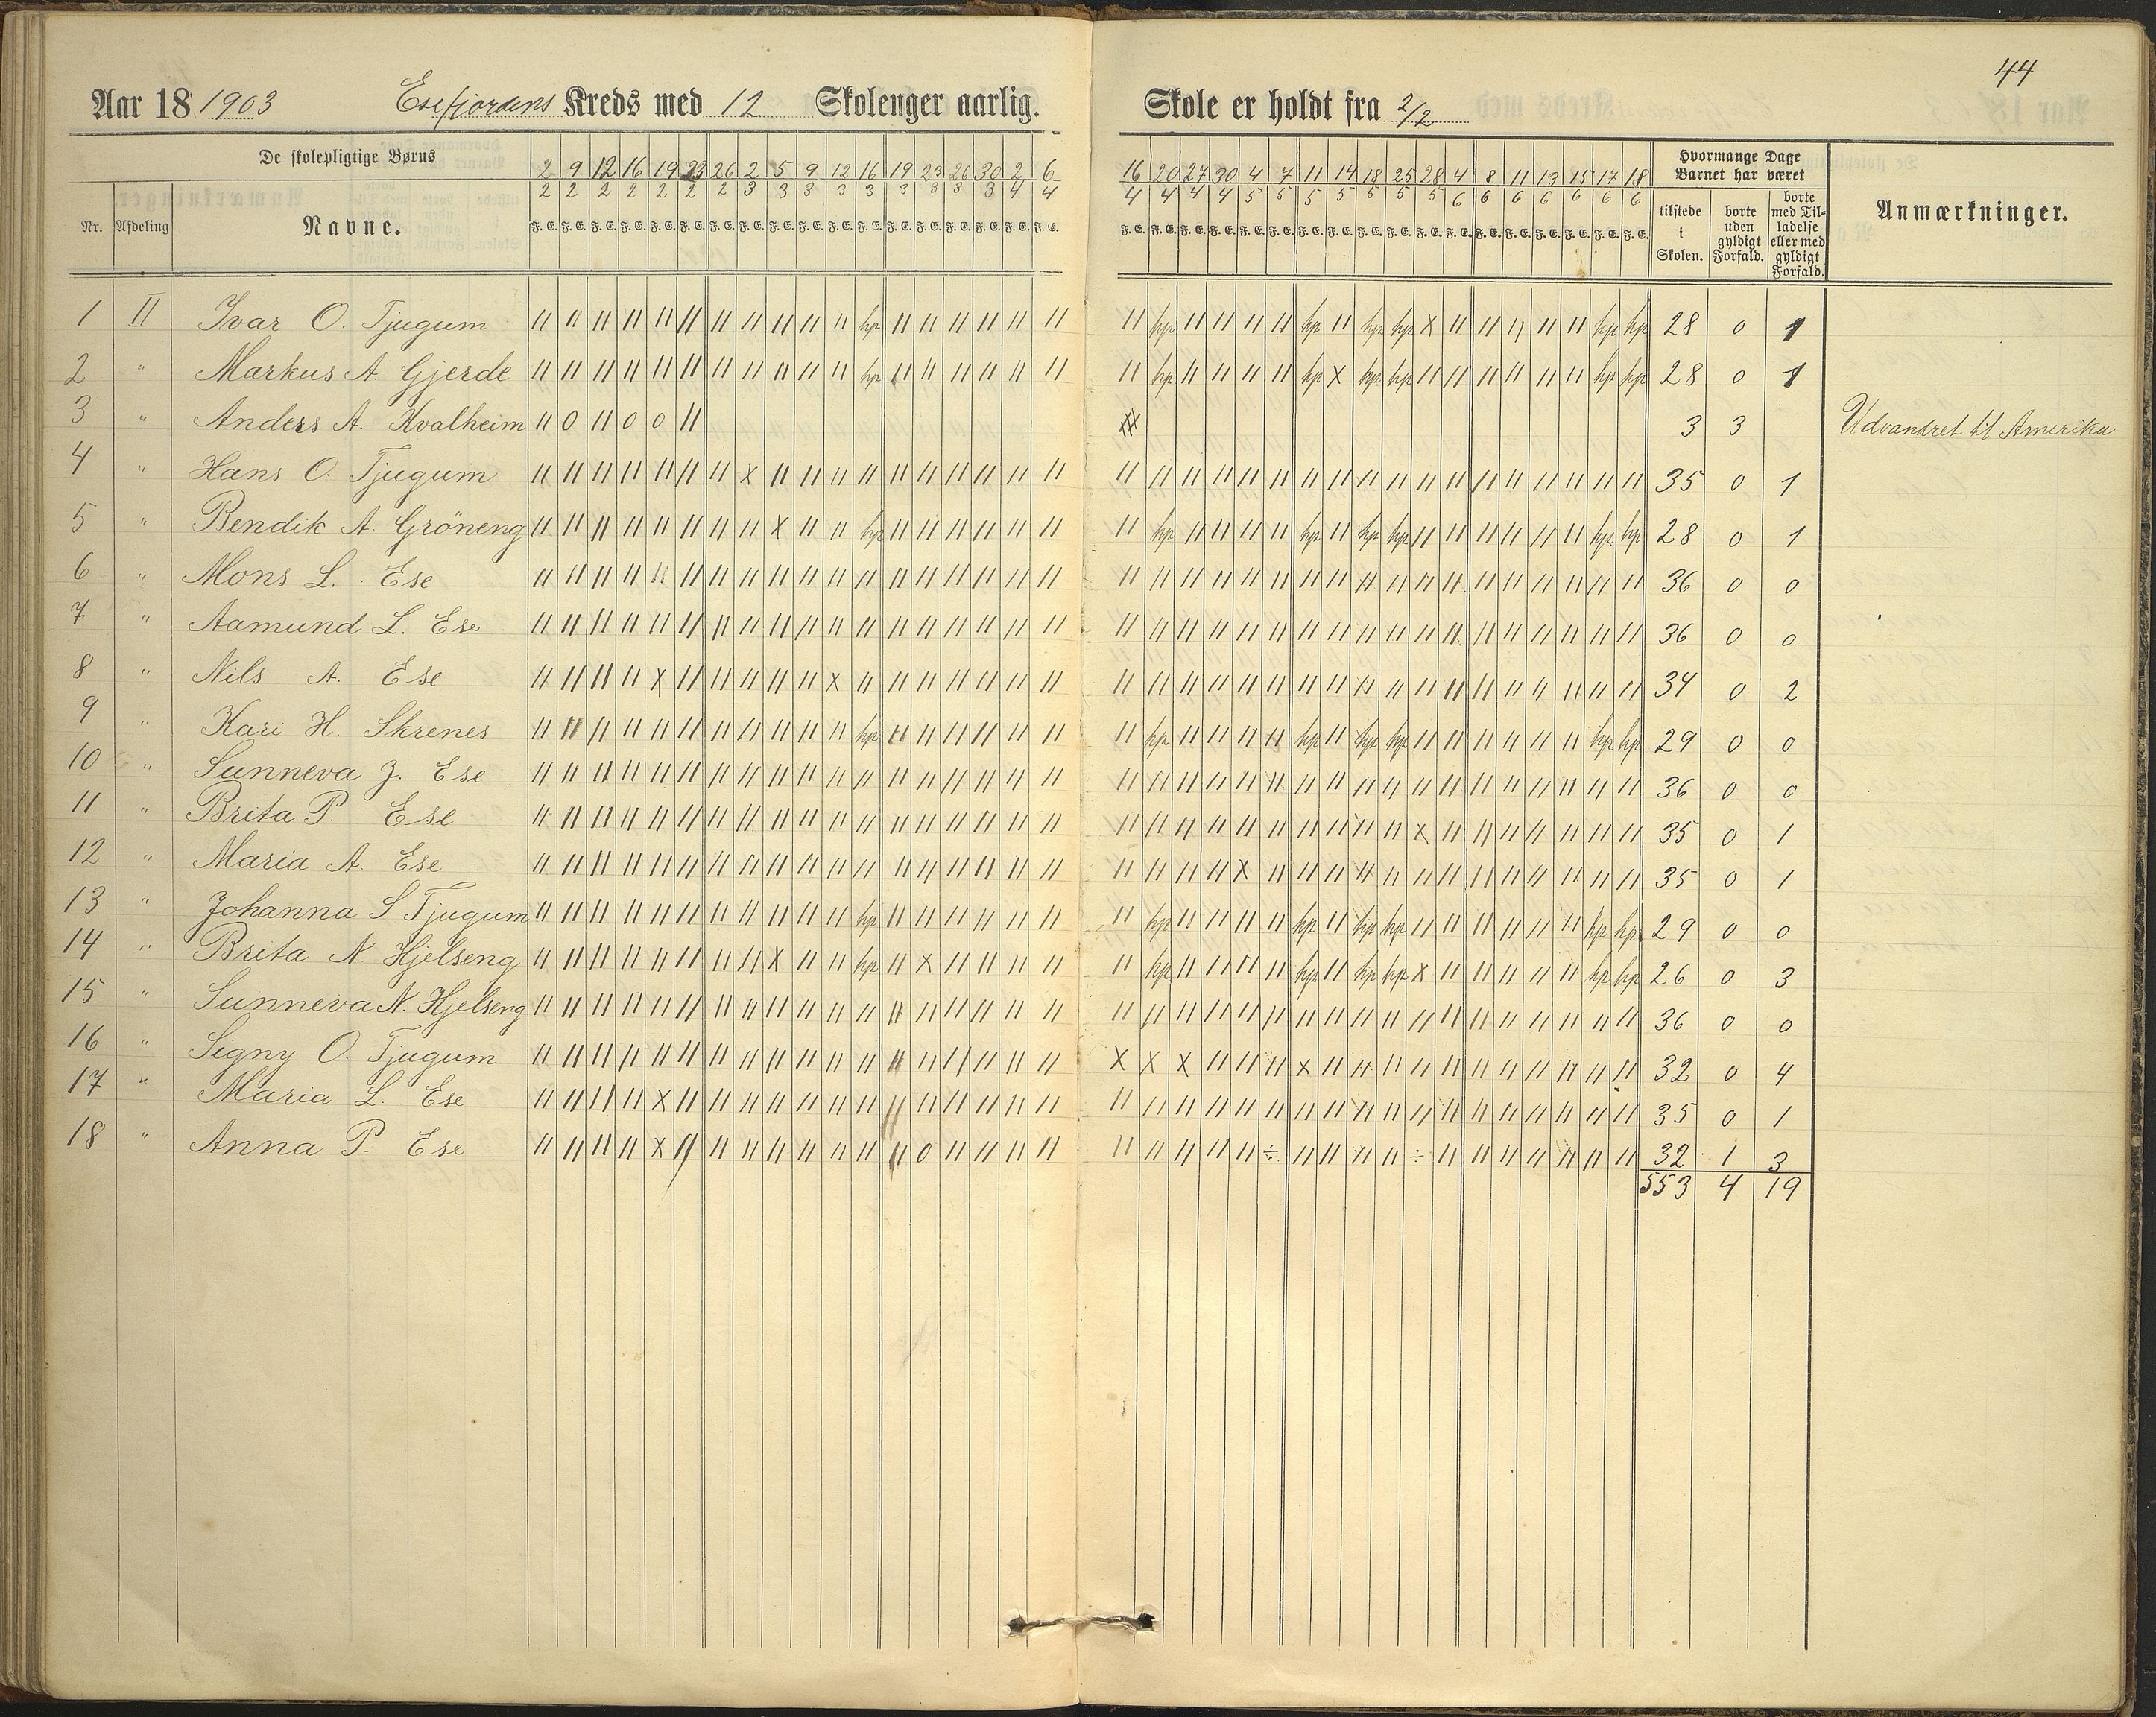 44
Aar 18 1903 Esefjordens Kreds med 12 Skolenger aarlig. Skole er holdt fra 2/2
De skolepligtige Børns
Nr. Afdeling Navne.
2 9 12 16 19 23 26 2 5 9 12 16 19 23 26 30 2 6
2 2 2 2 2 2 2 3 3 3 3 3 3 3 3 3 4 4
F. E. F. E. F. E. F. E. F. E. F. E. F. E. F. E. F. E. F. E. F. E. F. E. F. E. F. E. F. E. F. E. F. E. F. E.
16 20 27 30 4 7 11 14 18 25 28 4 8 11 13 15 17 18
4 4 4 4 5 5 5 5 5 5 5 6 6 6 6 6 6 6
F. E. F. E. F. E. F. E. F. E. F. E. F. E. F. E. F. E. F. E. F. E. F. E. F. E. F. E. F. E. F. E. F. E. F. E.
Hvormange Dage
Barnet har været
tilstede
i
Skolen.
borte
uden
gyldigt
Forfald.
borte
med Til-
ladelse
eller med
gyldigt
Forfald.
Anmærkninger.
1 II Ivar O. Tjugum 11 11 11 11 11 11 11 11 11 11 11 hp 11 11 11 11 11 11 11 hp 11 11 11 11 hp 11 hp hp x 11 11 11 11 11 hp hp 28 0 1
2 " Markus A. Gjerde 11 11 11 11 11 11 11 11 11 11 11 hp 11 11 11 11 11 11 11 hp 11 11 11 11 hp x hp hp 11 11 11 11 11 11 hp hp 28 0 1
3 " Anders A. Kvalheim 11 0 11 0 0 11 3 3 Udvandret til Amerika
4 " Hans O. Tjugum 11 11 11 11 11 11 11 x 11 11 11 11 11 11 11 11 11 11 11 11 11 11 11 11 11 11 11 11 11 11 11 11 11 11 11 11 35 0 1
5 " Bendik A. Gröneng 11 11 11 11 11 11 11 11 x 11 11 hp 11 11 11 11 11 11 11 hp 11 11 11 11 hp 11 hp hp 11 11 11 11 11 11 hp hp 28 0 1
6 " Mons L. Ese 11 11 11 11 11 11 11 11 11 11 11 11 11 11 11 11 11 11 11 11 11 11 11 11 11 11 11 11 11 11 11 11 11 11 11 11 36 0 0
7 " Aamund L. Ese 11 11 11 11 11 11 11 11 11 11 11 11 11 11 11 11 11 11 11 11 11 11 11 11 11 11 11 11 11 11 11 11 11 11 11 11 36 0 0
8 " Nils A. Ese 11 11 11 11 x 11 11 11 11 11 x 11 11 11 11 11 11 11 11 11 11 11 11 11 11 11 11 11 11 11 11 11 11 11 11 11 34 0 2
9 " Kari H. Skrenes 11 11 11 11 11 11 11 11 11 11 11 hp 11 11 11 11 11 11 11 hp 11 11 11 11 hp 11 hp hp 11 11 11 11 11 11 hp hp 29 0 0
10 " Sunneva J. Ese 11 11 11 11 11 11 11 11 11 11 11 11 11 11 11 11 11 11 11 11 11 11 11 11 11 11 11 11 11 11 11 11 11 11 11 11 36 0 0
11 " Brita P. Ese 11 11 11 11 11 11 11 11 11 11 11 11 11 11 11 11 11 11 11 11 11 11 11 11 11 11 11 11 x 11 11 11 11 11 11 11 35 0 1
12 " Maria A. Ese 11 11 11 11 11 11 11 11 11 11 11 11 11 11 11 11 11 11 11 11 11 11 x 11 11 11 11 11 11 11 11 11 11 11 11 11 35 0 1
13 " Johanna S Tjugum 11 11 11 11 11 11 11 11 11 11 11 hp 11 11 11 11 11 11 11 hp 11 11 11 11 hp 11 hp hp 11 11 11 11 11 11 hp hp 29 0 0
14 " Brita N. Hjelseng 11 11 11 11 11 11 11 11 x 11 11 hp 11 x 11 11 11 11 11 hp 11 11 11 11 hp 11 hp hp x 11 11 11 11 11 hp hp 26 0 3
15 " Sunneva N. Hjelseng 11 11 11 11 11 11 11 11 11 11 11 11 11 11 11 11 11 11 11 11 11 11 11 11 11 11 11 11 11 11 11 11 11 11 11 11 36 0 0
16 " Signy O. Tjugum 11 11 11 11 11 11 11 11 11 11 11 11 11 11 11 11 11 11 x x x 11 11 11 x 11 11 11 11 11 11 11 11 11 11 11 32 0 4
17 " Maria L. Ese 11 11 11 11 x 11 11 11 11 11 11 11 11 11 11 11 11 11 11 11 11 11 11 11 11 11 11 11 11 11 11 11 11 11 11 11 35 0 1
18 " Anna P. Ese 11 11 11 11 x 11 11 11 11 11 11 11 11 0 11 11 11 11 11 11 11 11 11 ÷ 11 11 11 11 ÷ 11 11 11 11 11 11 11 32 1 3
553 4 19